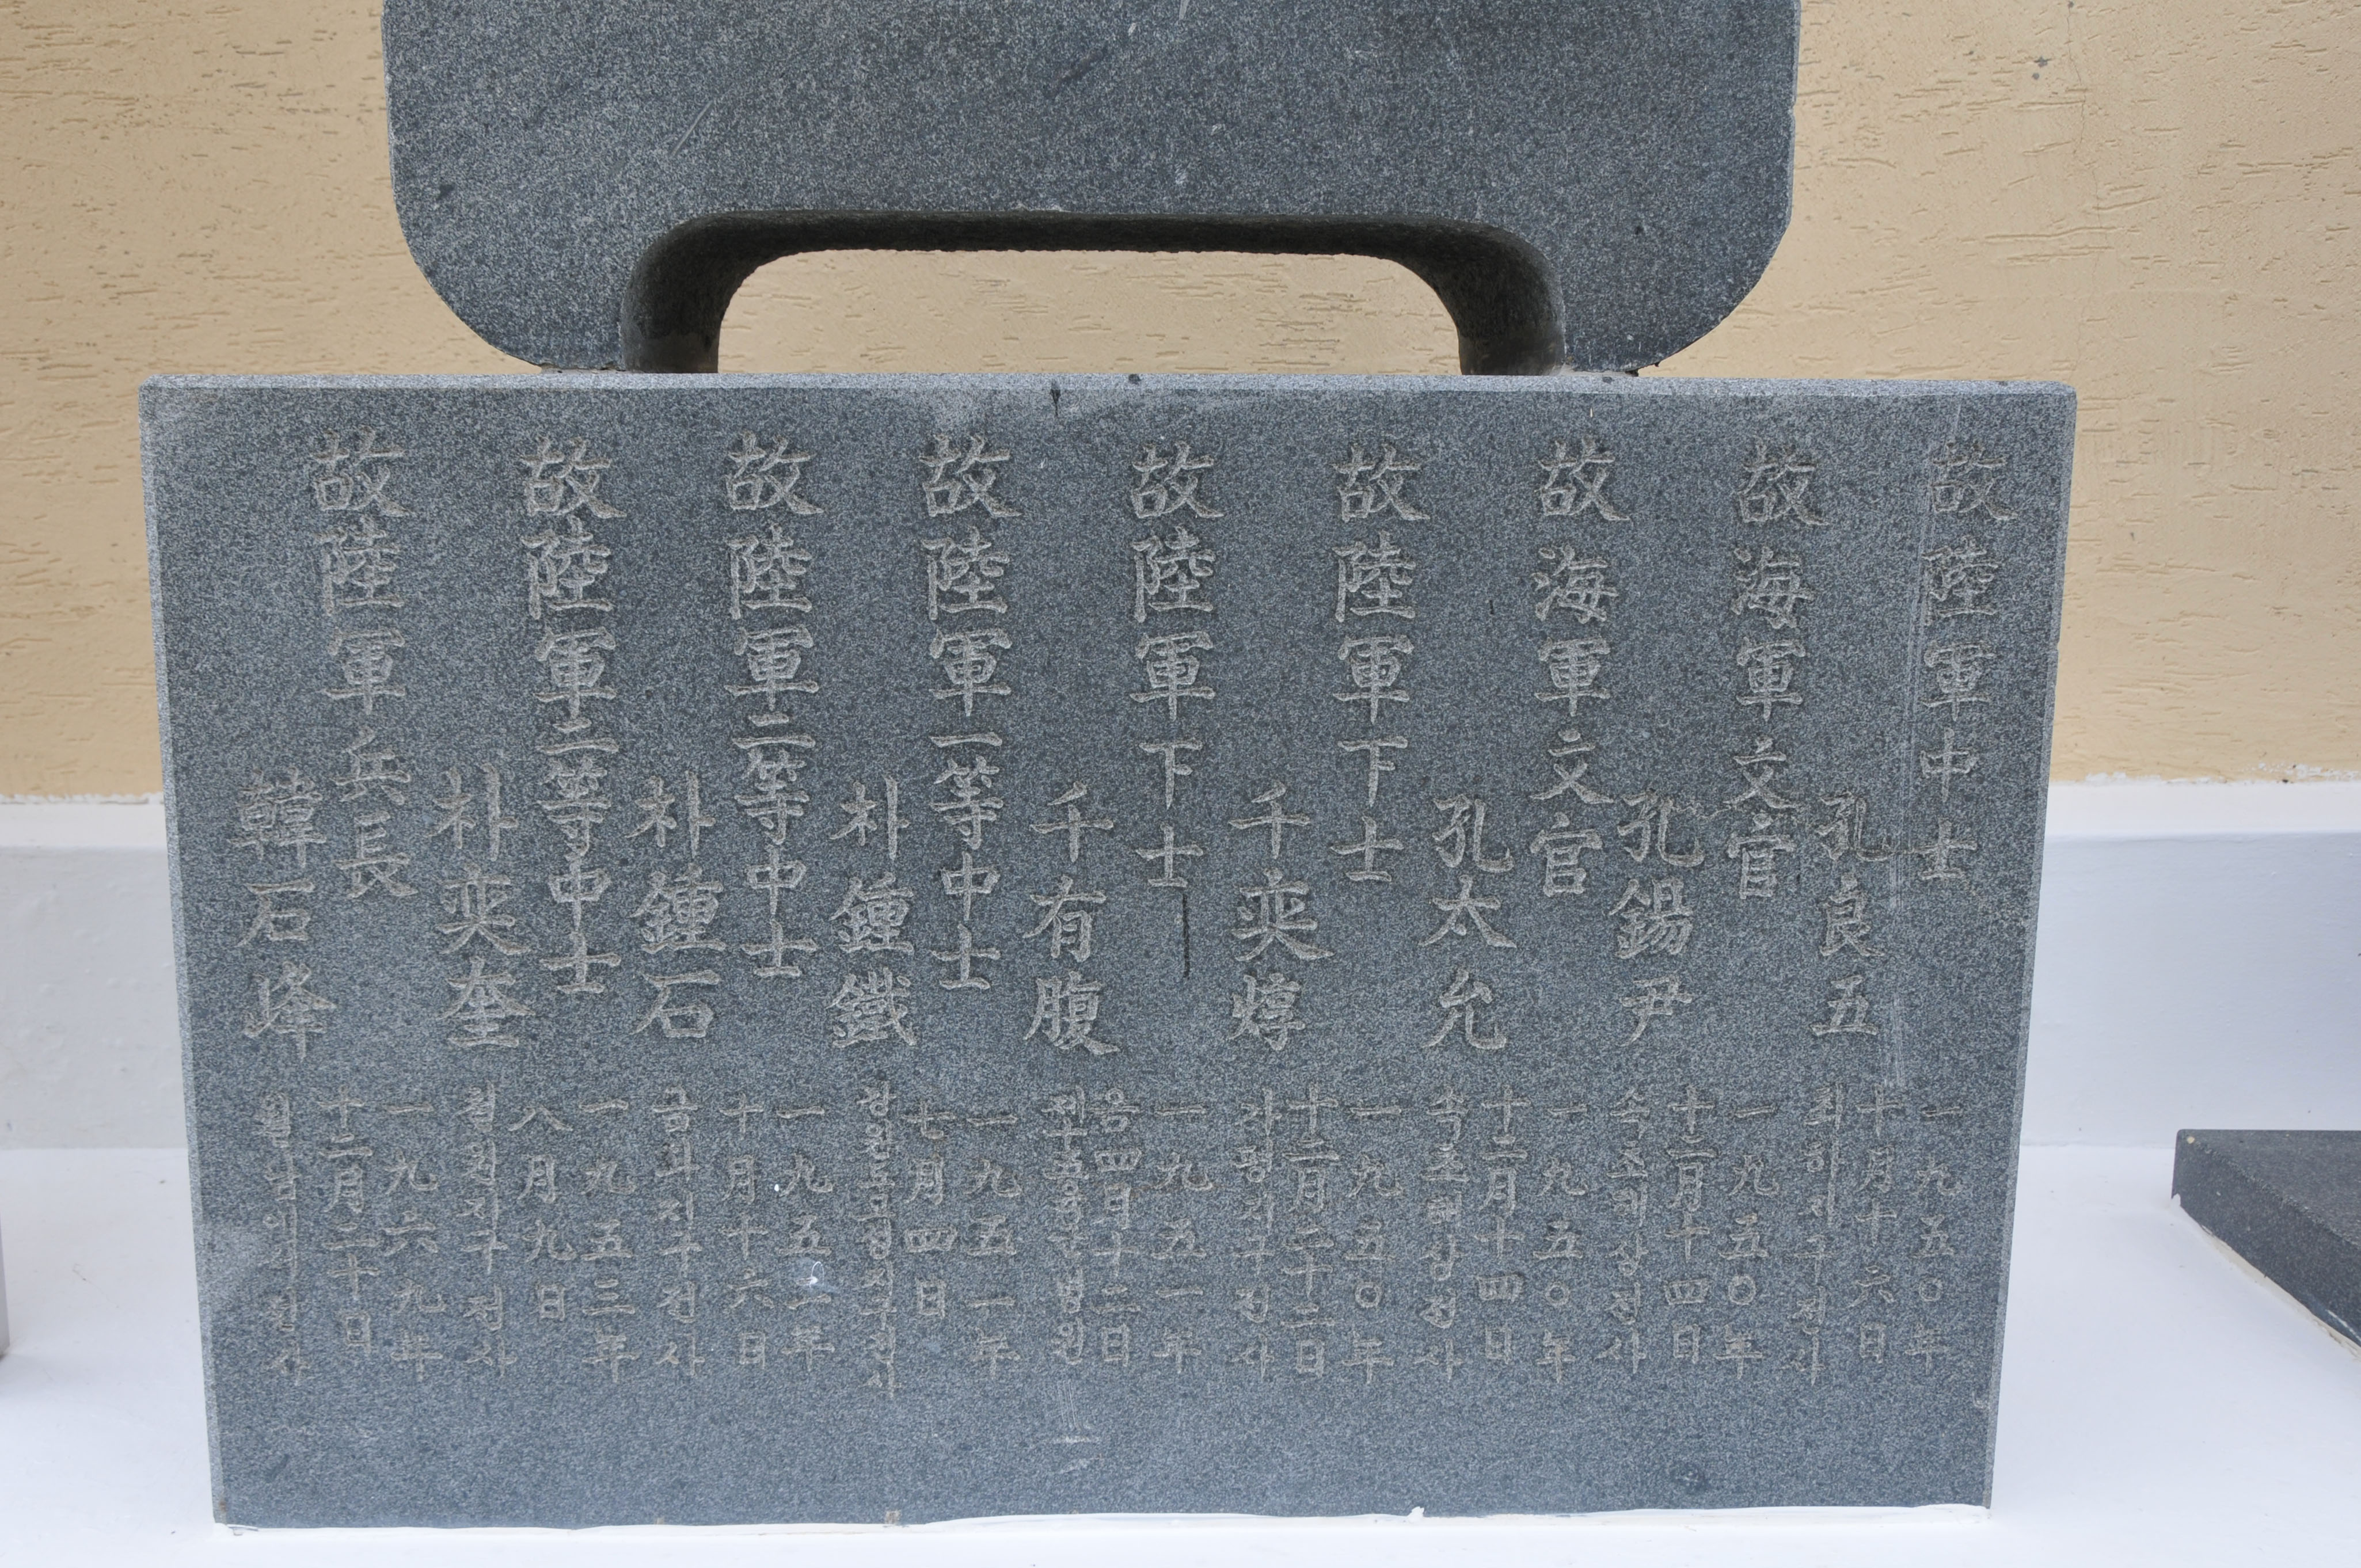 故陸軍中士
孔良五
一九五〇年
十月十六日
지구전사
故海軍文官
孔錫尹
一九五〇年
十二月十四日
속초해상전사
故海軍文官
孔太允
一九五〇年
十二月十四日
속초해상전사
故陸軍下士
千奕焞
一九五〇年
十二月二十二日
가평지구전사
故陸軍下士
千有腹
一九五一年
음四月十二日
故陸軍一等中士
朴鍾鐵
一九五一年
七月四日
故陸軍二等中士
朴鍾石
一九五二年
十月十六日
금화지구전사
故陸軍二等中士
朴奕奎
一九五三年
八月九日
철원지구전사
故陸軍兵長
韓石峰
一九六九年
十二月二十日
월남에서전사